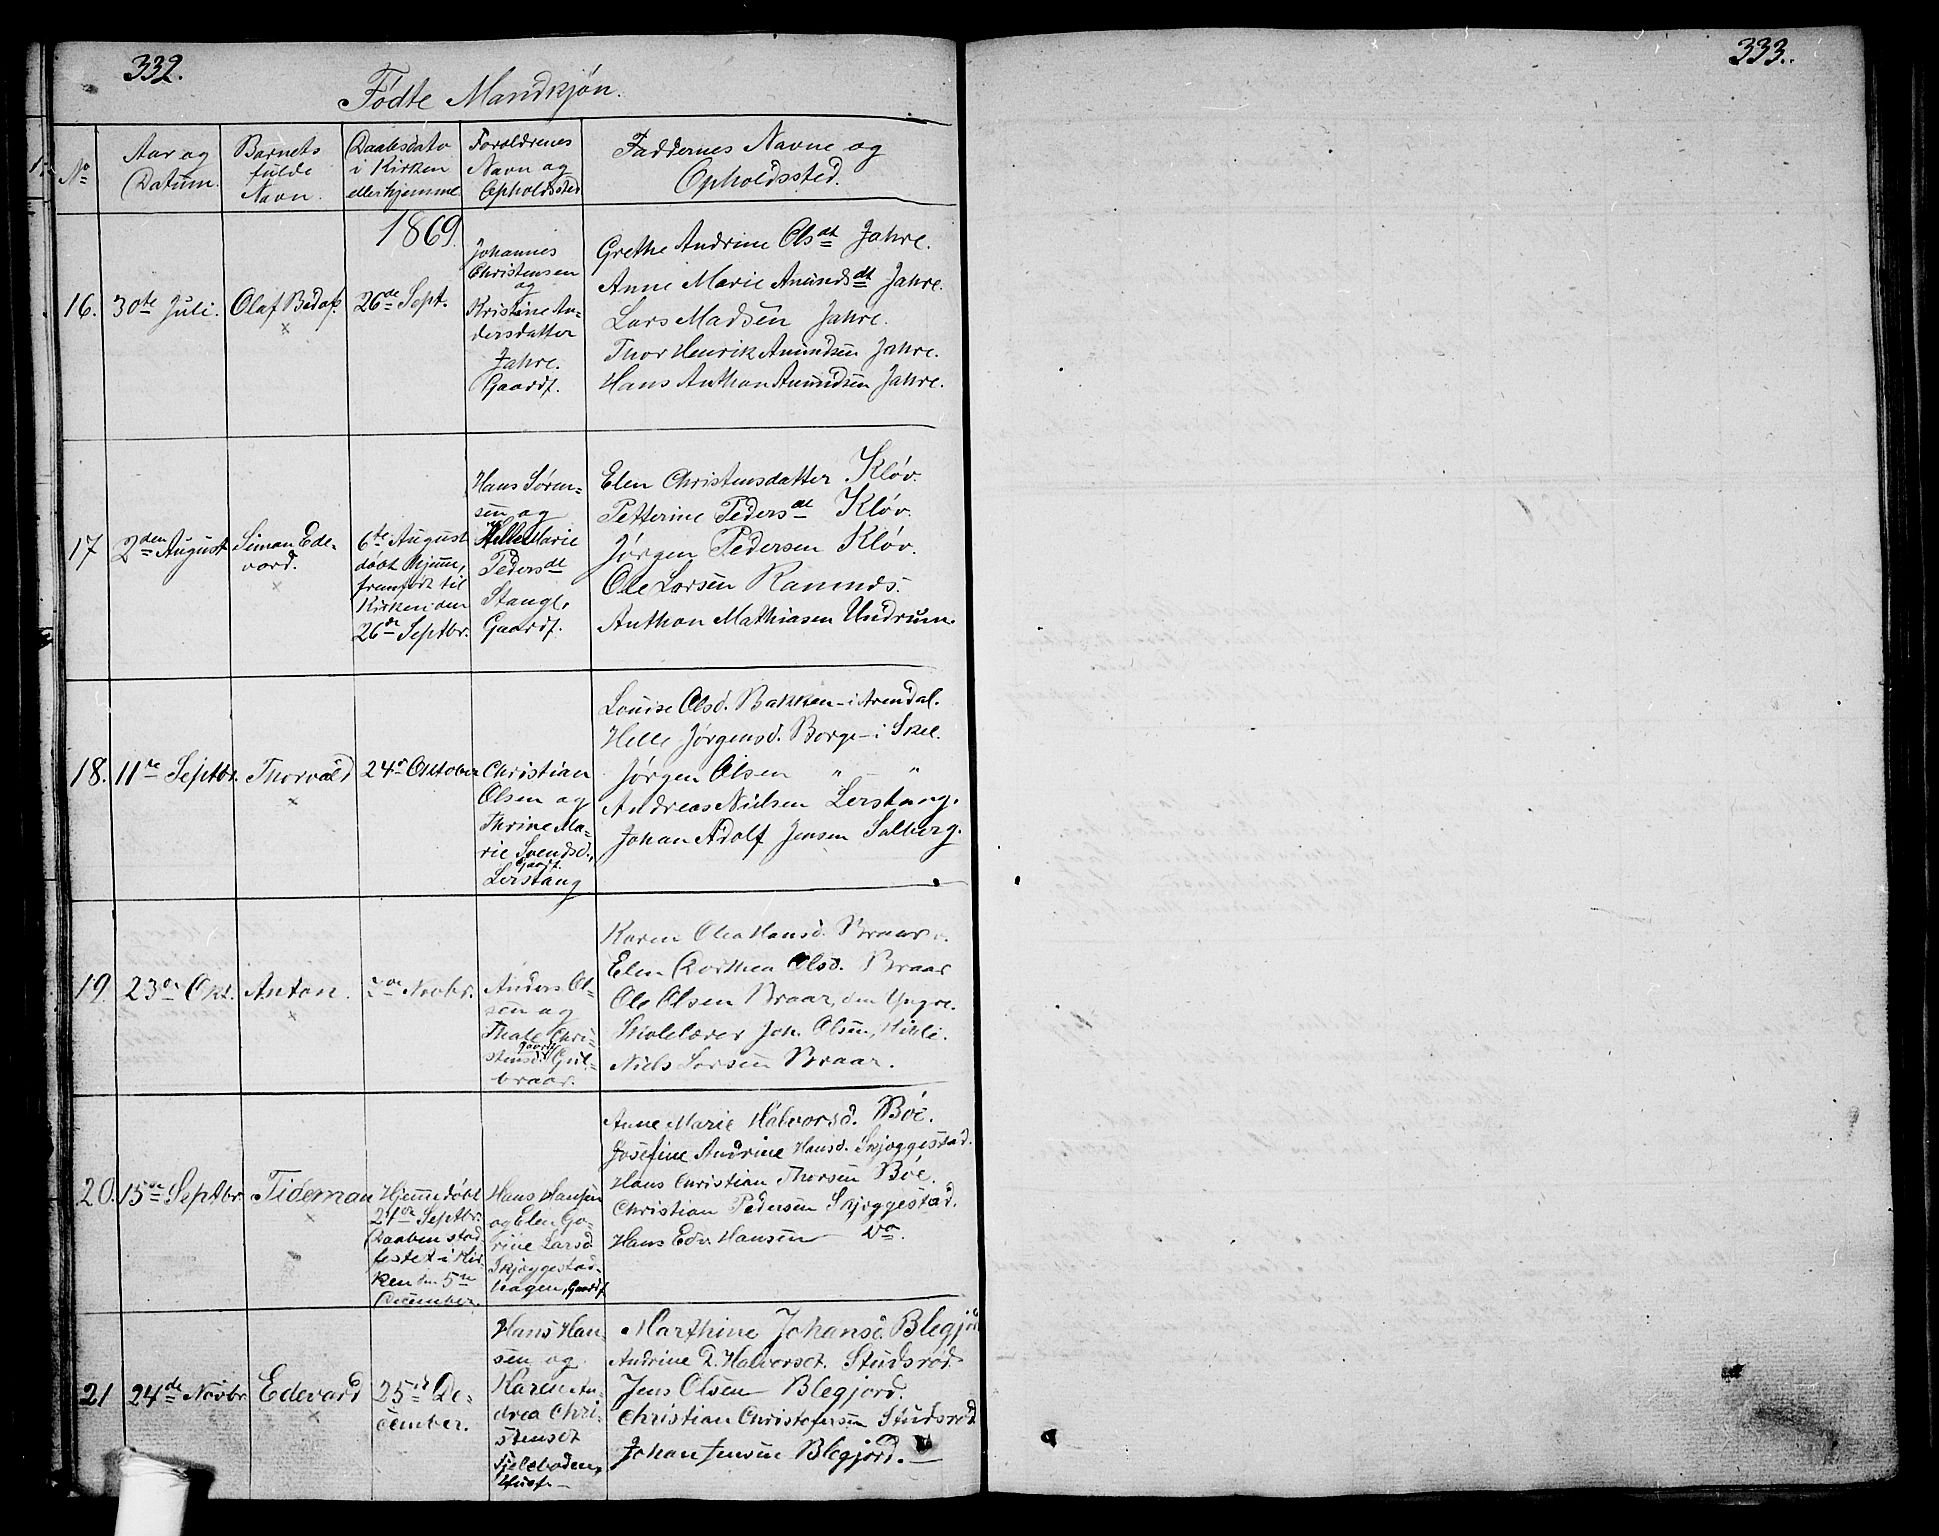 332.
333.
Fødte Mandkjøn.
No
Aar og
Datum.
Barnets
fulde
Navn.
Daabsdato
i Kirken
eller hjemme
Foreldrenes
Navn og
Opholdssted
Faddernes Navne og
Opholdssted.
1869.
16.
30te Juli.
Olaf
×
26de Sept.
Johannes
Christensen
og
Kristine An-
dersdatter
Jahre.
Gaardf.
Grethe Andrine Olsdt Jahre.
Anne Marie Amundsdt Jahre.
Lars Madsen Jahre.
Thor Henrik Amundsen Jahre.
Hans Anthon Amundsen Jahre.
17
2den August
Simon Ede-
vard.
×
6te August
døbt hjem,
fremført til
Kirken den
26de Septbr.
Hans Søren-
sen og
Helle Marie
Pedersdt
Stange,
Gaardf.
Elen Christensdatter Kløv.
Petterine Pedersdt Kløv.
Jørgen Pedersen Kløv.
Ole Larsen Ramnes.
Anthon Mathiasen Undrum.
18.
11te Septbr.
Thorvald
×
24de Oktober
Christian
Olsen og
Thrine Ma-
rie Svendsd.,
Gaardf.
Lerstang
Louise Olsd. Bakken - i Arendal.
Helle Jørgensd. Borge - i Skee.
Jørgen Olsen " - "
Andreas Nielsen Lerstang.
Johan Adolf Jensen Solberg.
19.
23de Okt.
Anton.
×
Novbr.
Anders Ol-
sen og
Thale Chri-
stensd.
Gaardf.
braar.
Karen Olea Hansd. Braar
Elen Dorthea Olsd. Braar
Ole Olsen Braar, den Yngre.
Skolelærer Joh. Olsen,
Niels Larsen Braar.
20.
15de Septbr.
Tideman
×
Hjemmedøbt
24de Septbr.
Daaben stad-
festet i Kir-
ken den 5te
December.
Hans Hansen
og Elen Go-
rine Larsd.
Skjæggestad-
hagen, Gaardf.
Anne Marie Halvorsd. Bøe.
Josefine Andrine Hansd. Skjæggestad.
Hans Christian Thorsen Bøe.
Christian Pedersen Skjæggestad.
Hans Edv. Hansen Do.
21
24de Novbr.
Edevard
×
25de De-
cember.
Hans Han-
sen og
Karen An-
drea Chri-
stensdt
Husf.
Marthine Johansd. Blegjord
Andrine D. Halvorsdt. Studsrød
Jens Olsen Blegjord.
Christian Christofersen Studsrød
Johan Jensen Blegjord.